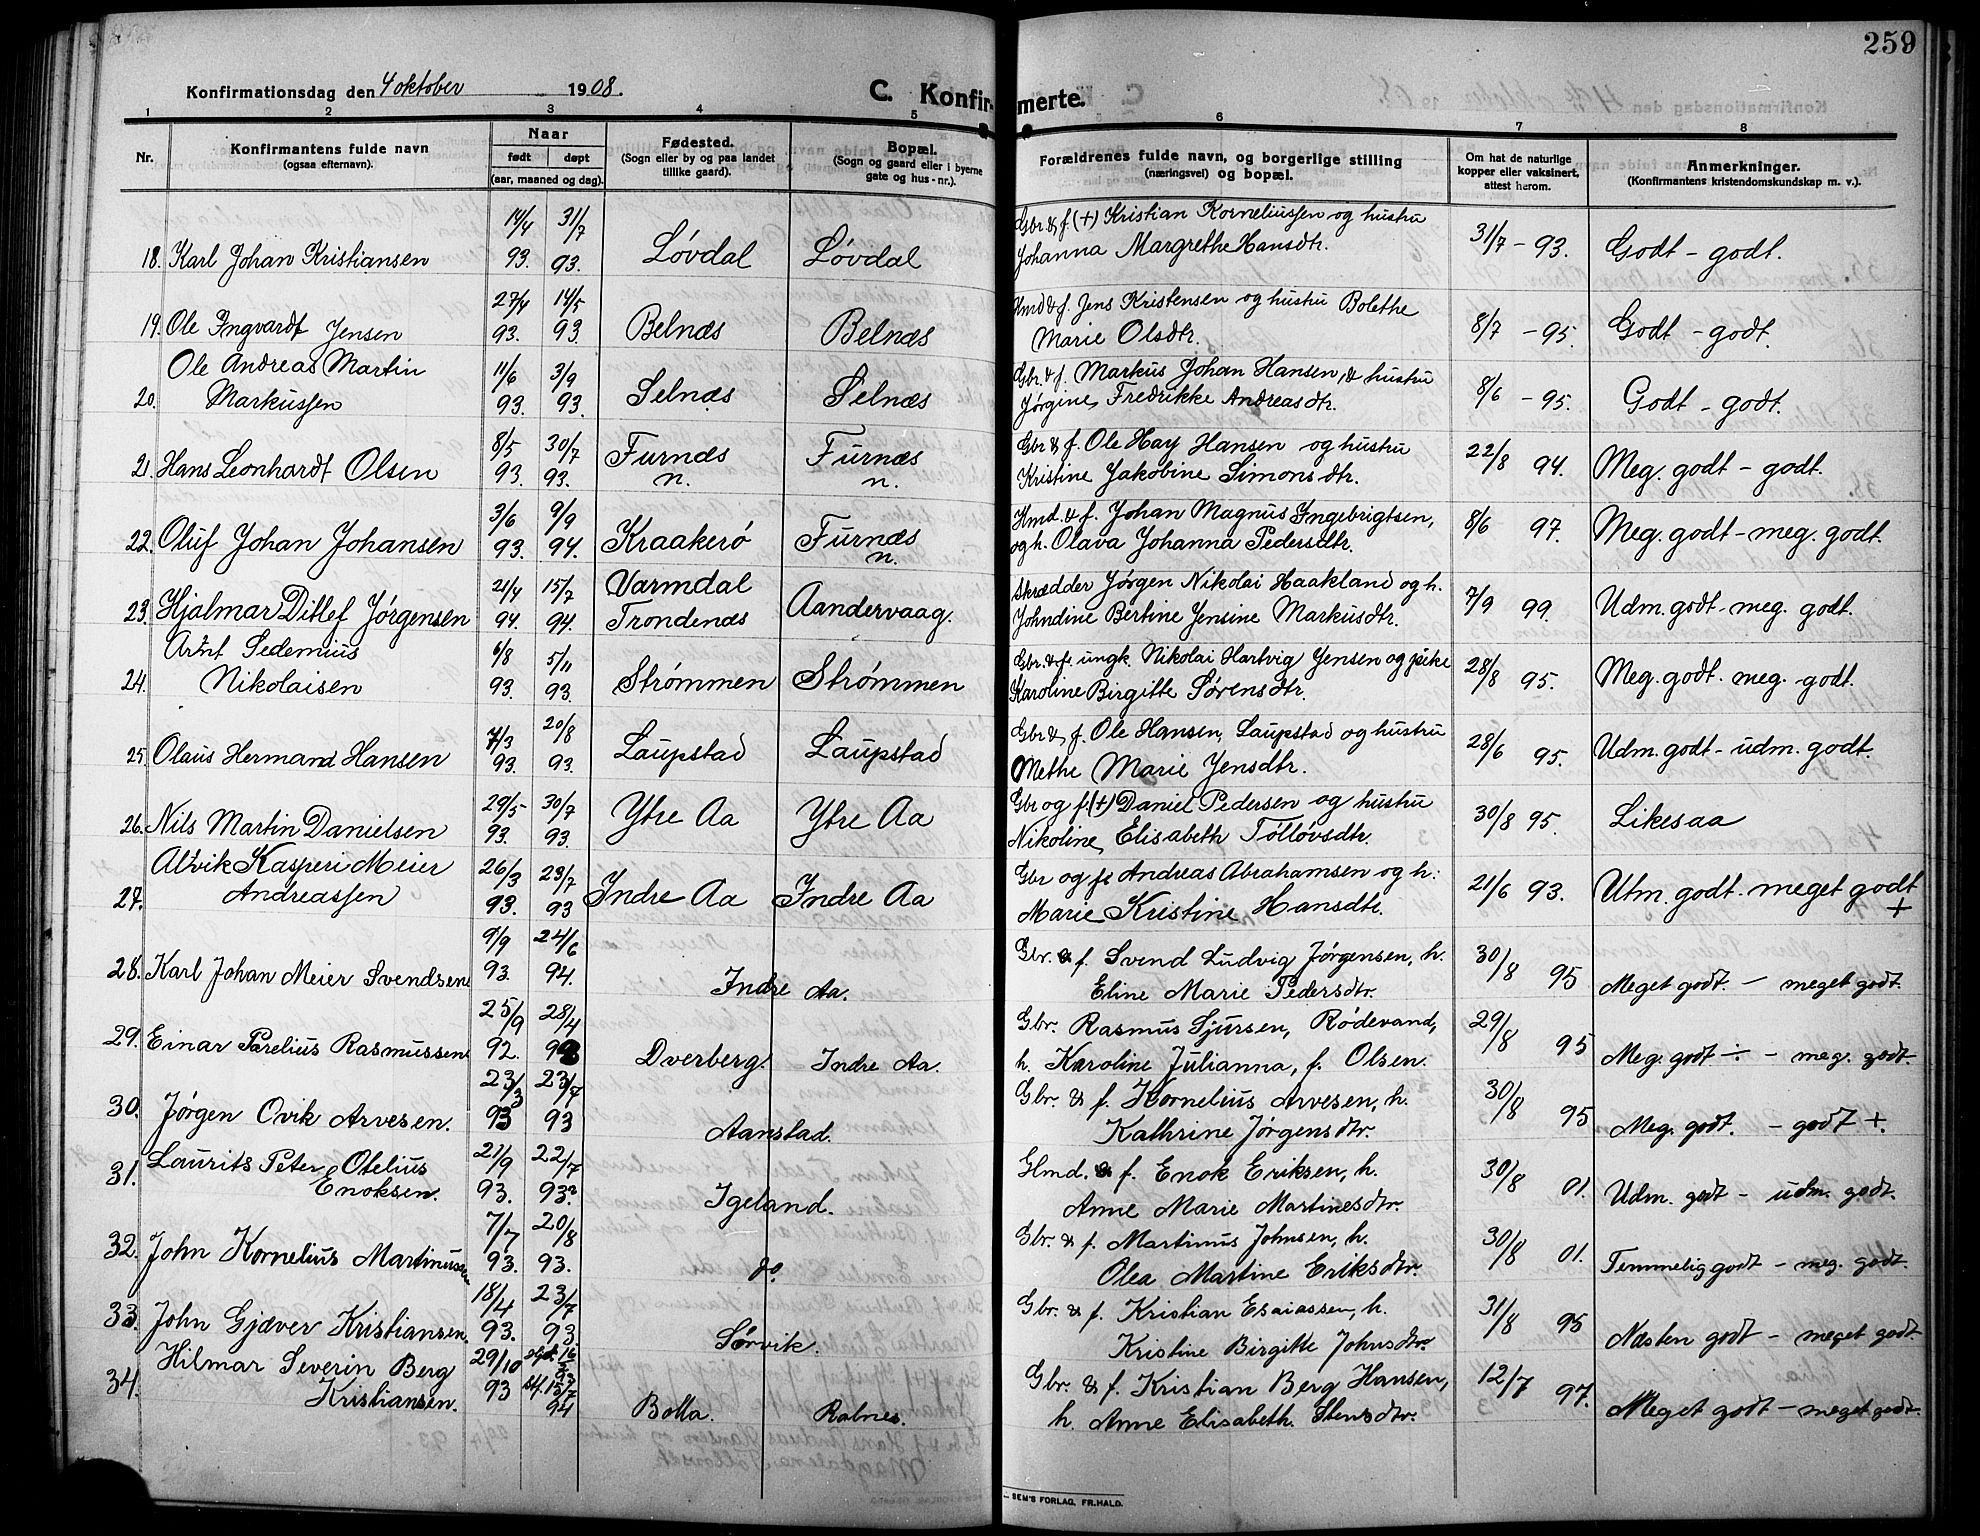 259
Konfirmationsdag den 4 oktober 1908.
C. Konfirmerte.
1 2 3 4 5 6 7 8
Nr.
Konfirmantens fulde navn
(ogsaa efternavn).
Naar
født døpt
(aar, maaned og dag).
Fødested.
(Sogn eller by og paa landet
tillike gaard).
Bopæl.
(Sogn og gaard eller i byerne
gate og hus-nr.).
Forældrenes fulde navn, og borgerlige stilling
(næringsvei) og bopæl.
Om hat de naturlige
kopper eller vaksinert,
attest herom.
Anmerkninger.
(Konfirmantens kristendomskundskap m. v.).
14/4 31/7 Gbr. & f. (+) Kristian Korneliussen og hustru
18. Karl Johan Kristiansen 93. 93. Løvdal Løvdal Johanna Margrethe Hansdtr. 31/7 - 93. Godt - godt.
27/4 14/5 Hmd & f. Jens Kristensen og hustru Bolethe
19. Ole Ingvardt Jensen 93. 93. Belnæs Belnæs Marie Olsdtr. 8/7 - 95. Godt - godt.
Ole Andreas Martin 11/6 3/9 Gbr. & f. Markus Johan Hansen, & hustru
20. Markussen 93. 93. Selnæs Selnæs Jørgine Fredrikke Andreasdtr. 8/6 - 95. Godt - godt.
8/5 30/7 Furnæs Furnæs Gbr & f. Ole Hay Hansen og hustru
21. Hans Leonhardt Olsen 93. 93. n. n. Kristine Jakobine Simonsdtr. 22/8 94. Meg. godt - godt.
3/6 9/9 Hmd. & f. Johan Magnus Ingebrigtsen,
22. Oluf Johan Johansen 93. 94. Kraakerø Furnæs n. og h. Olava Johanna Pedersdtr. 8/6 97. Meg. godt - meg. godt.
21/4 15/7 Varmdal Skrædder Jørgen Nikolai Haakland og h.
23. Hjalmar Ditlef Jørgensen 94. 94. Trondenæs Aandervaag. Johndine Bertine Jensine Markusdtr. 7/9 99. Udm. godt - meg. godt.
Arnt Sedenius 6/8 5/11 Gbr. & f. ungk. Nikolai Hartvig Jensen og pike
24. Nikolaisen 93. 93. Strømmen Strømmen Karoline Birgitte Sørensdtr. 28/8 95. Meg. godt - meg. godt.
7/3 20/8 Gbr & f. Ole Hansen, Laupstad og hustru
25. Olaus Hermand Hansen 93. 93. Laupstad Laupstad Methe Marie Jensdtr. 28/6 95. Udm. godt - udm. godt.
29/5 30/7 Gbr og f. (+) Daniel Pedersen og hustru
26. Nils Martin Danielsen 93. 93. Ytre Aa Ytre Aa Nikoline Elisabeth Tølløvsdtr. 30/8 95. Likesaa
Alvik Kasperi Meier 26/3 23/7 Gbr og f. Andreas Abrahamsen og h:
27. Andreassen 93. 93 Indre Aa Indre Aa Marie Kristine Hansdtr. 21/6 93. Utm. godt - meget godt +
9/9 24/6 Gbr. & f. Svend Ludvig Jørgensen, h.
28. Karl Johan Meier Svendsen 93. 94. Indre Aa. Eline Marie Pedersdtr. 30/8 95 Meget godt. - meget godt.
25/9 28/4 Gbr. Rasmus Sjursen, Rødevand,
29. Einar Parelius Rasmussen 92. 93 Dverberg. Indre Aa. h. Karoline Julianna, f. Olsen. 29/8 95 Meg. godt ÷ - meg. godt.
23/3 23/7 Gbr. & f. Kornelius Arvesen, h.
30. Jørgen Ovik Arvesen. 93 93 Aanstad. Kathrine Jørgensdtr. 30/8 95 Meg. godt. - godt +.
Laurits Peter Otelius 21/9 22/7 Hmd. & f. Enok Eriksen, h.
31. Enoksen. 93. 93? Igeland. Anne Marie Martinesdtr. 30/8 01. Udm. godt - udm. godt.
7/7 20/8 Gbr. & f. Martinus Johnsen, h.
32. John Kornelius Martinussen 93. 93. do. Olea Martine Eriksdtr. 30/8 01. Temmelig godt - meg. godt.
18/4 23/7 Gbr. & f. Kristian Esaiassen, h.
33. John Gjæver Kristiansen. 93. 93. Sørvik. Kristine Birgitte Johnsdtr. 31/8 95 Næsten godt - meget godt
Hilmar Severin Berg 29/10 Gbr. & f. Kristian Berg Hansen,
34. Kristiansen. 93 15/7 94 Bolla. Ralnes. h. Anne Elisabeth Stensdtr. 12/7 97. Meget godt - meget godt.
SEM'S FORLAG, FR.HALD.